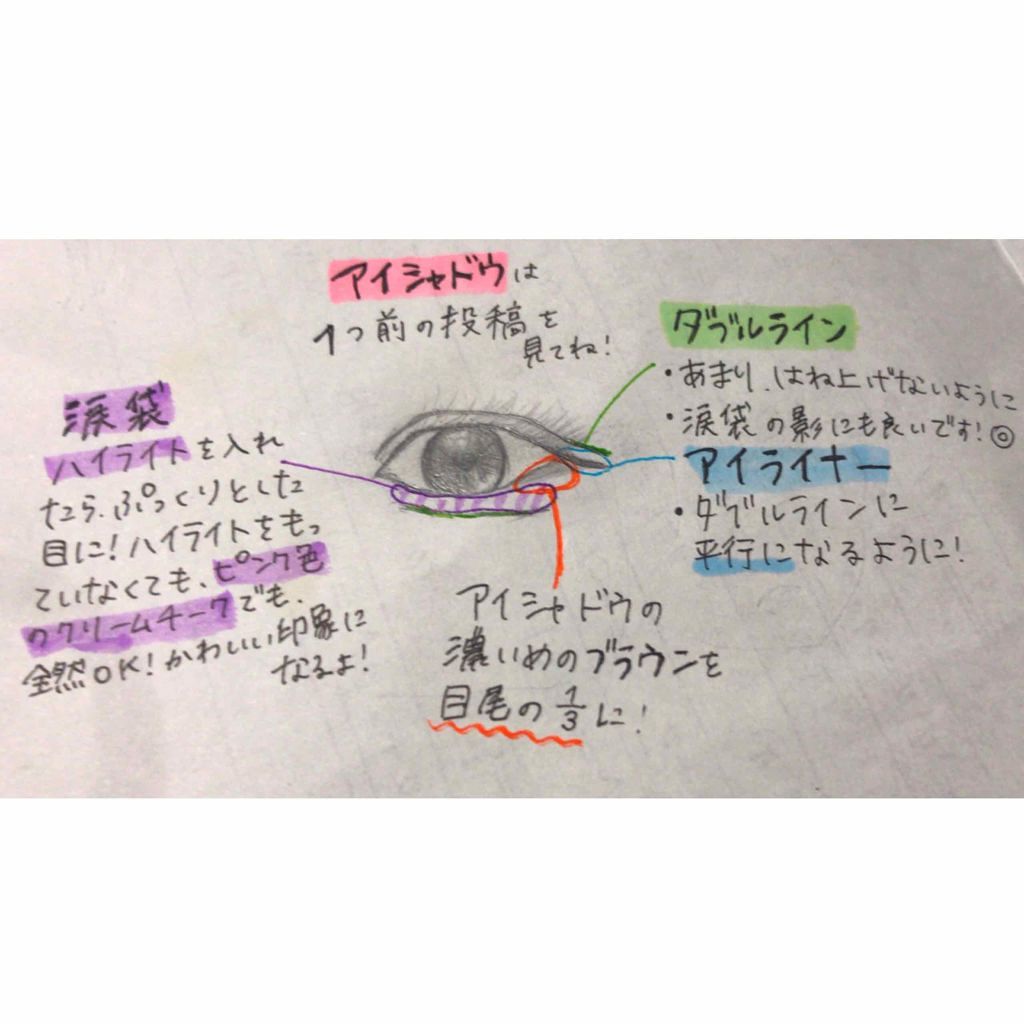 アイシャドウは
1つ前の投稿を
見てね!
ダブルライン
・あまり、はね上げないように
・涙袋の影にも良いです!◎
アイライナー
・ダブルラインに
平行になるように!
涙袋
ハイライトを入れ
たら、ぷっくりとした
目に!ハイライトをもっ
ていなくても、ピンク色
のクリームチークでも、
全然OK!かわいい印象に
なるよ!
アイシャドウの
濃いめのブラウンを
目尾の1/3に!